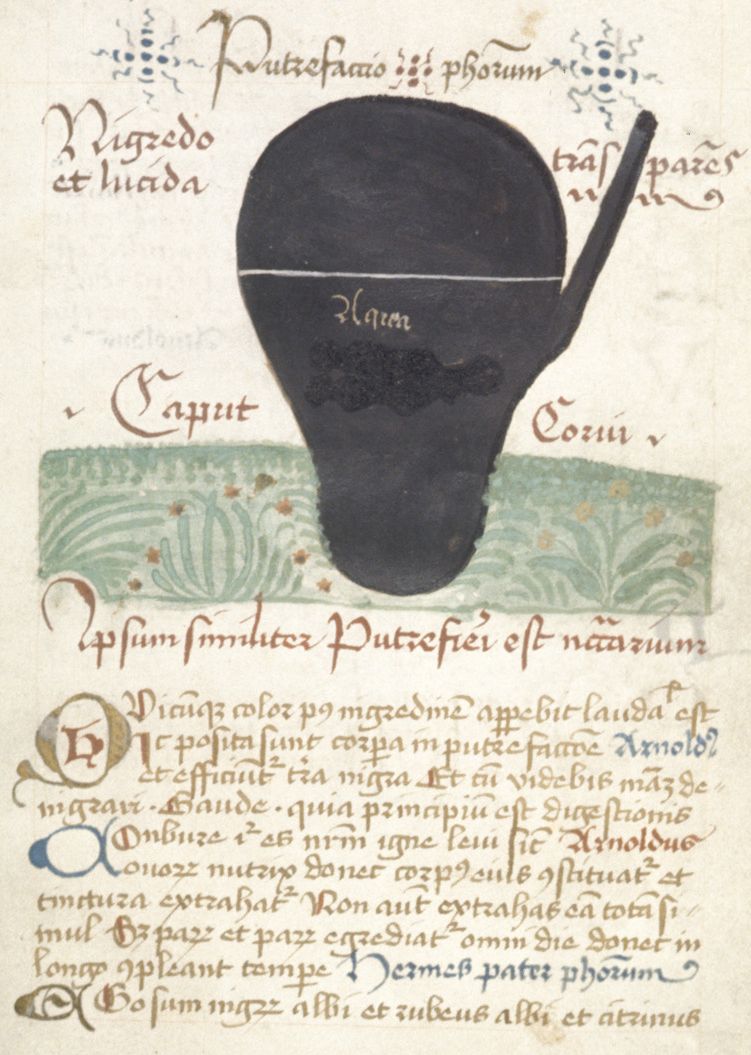 Putrefaccio phorum
Nigredo trans parens
et lucida
Aqua
Caput Corui
Ipsum similiter Putrefieri est nccarium
Quicumqz color p9 nigredinem apparebit laudabilis est
Hic posita sunt corpora in putrefaccoe Arnold9
et efficiunt tra nigra Et cum videbis mam de-
nigrari · Gaude · quia principium est digestionis
Conbure es nrm igne leui sic Arnoldus
nutrix donec corp9 eius 9stituat et
tinctura extrahat Non aut extrahas ea tota si-
mul Sz parz et parz egrediat omni die donec in
longo 9pleant tempe Hermes pater phorum
Ego sum nigrz albi et rubeus albi et citrinus